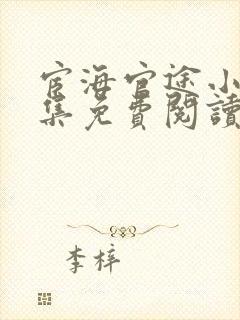 宦海官途小
集免費閱讀
李梓